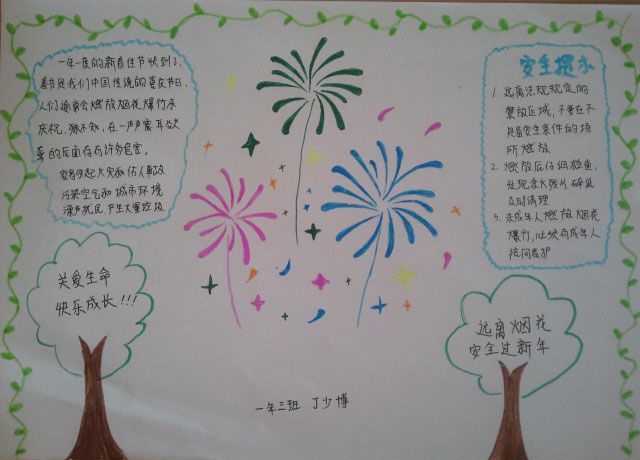 一年一度的新春佳节快到了,
春节是我们中国传统的喜庆节日,
人们通常会燃放烟花爆竹来
庆祝,殊不知,在一声声震耳欲
聋的反面存有许多危害,
容易引起火灾和伤人事故
污染空气和城市环境
噪声扰民,产生大量垃圾
安全提示
1. 远离法规规定的
禁放区域,不要在不
具备安全条件的场
所燃放
2. 燃放后仔细检查,
发现余火残片
及时清理
3. 未成年人燃放烟花
爆竹,必须有成年人
陪同看护
关爱生命
快乐成长!!!
远离烟花
安全过新年
一年三班 丁少博